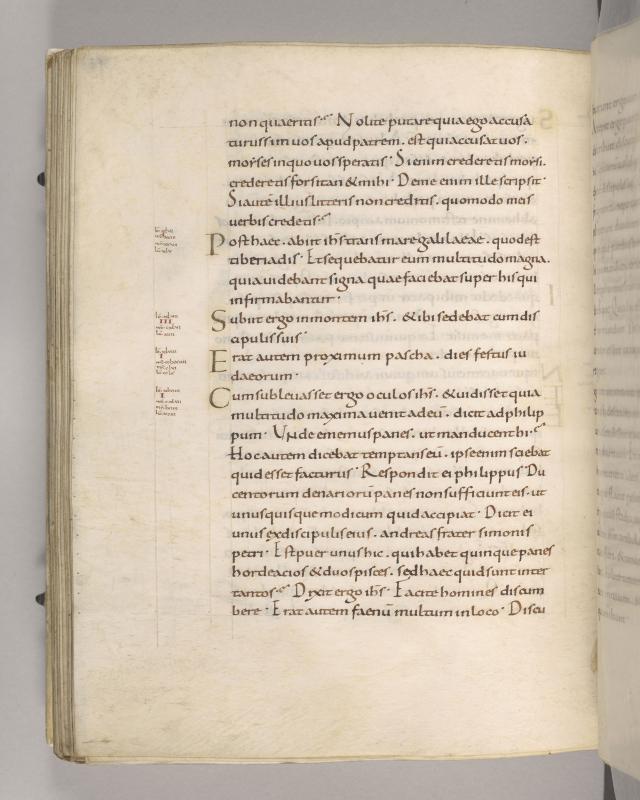 non quaeritis· Nolite putare quia ego accusa
turus sim uos apud patrem. est qui accusat uos.
moyses in quo uos speratis· Si enim crederetis moysi.
crederetis forsitan & mihi· De me enim ille scripsit·
Si autē illius litteris non creditis. quomodo meis
uerbis credetis·
Post haec. abiit ihs trans mare galilaeae. quod est
tiberiadis· Et sequebatur eum multitudo magna.
quia uidebant signa quae faciebat super his qui
infirmabantur·
Subiit ergo in montem ihs. & ibi sedebat cum dis
cipulis suis
Erat autem proximum pascha. dies festus iu
daeorum·
Cum subleuasset ergo oculos ihs. & uidisset quia
multitudo maxima uenit ad eū. dicit ad philip
pum· Unde ememus panes. ut manducent hi·
Hoc autem dicebat temptans eū. ipse enim sciebat
quid esset facturus· Respondit ei philippus· Du
centorum denariorū panes non sufficiunt eis. ut
unusquisque modicum quid accipiat· Dicit ei
unus ex discipulis eius. andreas frater simonis
petri· Est puer unus hic. qui habet quinque panes
hordeacios & duos pisces. sed haec quid sunt inter
tantos· Dixit ergo ihs· Facite homines discum
bere· Erat autem faenū multum in loco· Discu